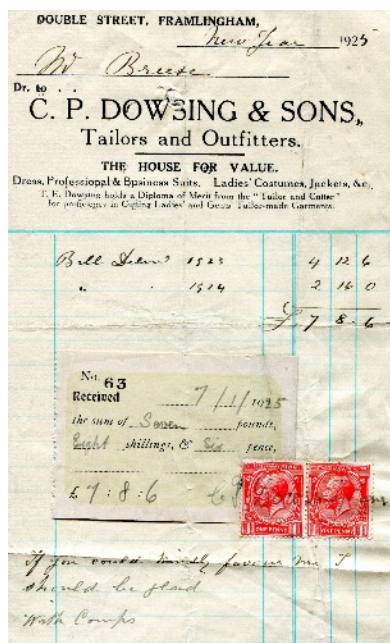 DOUBLE STREET, FRAMLINGHAM,
New Year 1925
Mr Breese
Dr. to . .
C. P. DOWSING & SONS,
Tailors and Outfitters.
THE HOUSE FOR VALUE.
Dress, Professional & Business Suits, Ladies' Costumes, Jackets, &c.
T. E. Dowsing holds a Diploma of Merit from the "Tailor and Cutter"
for proficiency in Cutting Ladies' and Gents' Tailor-made Garments.
Bill 1923 4 12 6
" 1924 2 16 0
£ 7 8 . 6
No. 63
Received 7/1/1925
the sum of Seven pounds,
Eight shillings, & Six pence,
£ 7 : 8 : 6
ONE PENNY ONE PENNY
If you could kindly favour me I
should be glad
With Comps